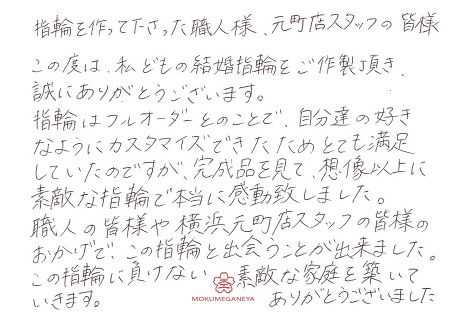 指輪を作って下さった職人様、元町店スタッフの皆様
この度は、私どもの結婚指輪をご作製頂き、
誠にありがとうございます。
指輪はフルオーダーとのことで、自分達の好き
なようにカスタマイズできたためとても満足
していたのですが、完成品を見て、想像以上に
素敵な指輪で本当に感動致しました。
職人の皆様や横浜元町店スタッフの皆様の
おかげで、この指輪と出会うことが出来ました。
この指輪に負けない 素敵な家庭を築いて
いきます。 ありがとうございました
MOKUMEGANEYA